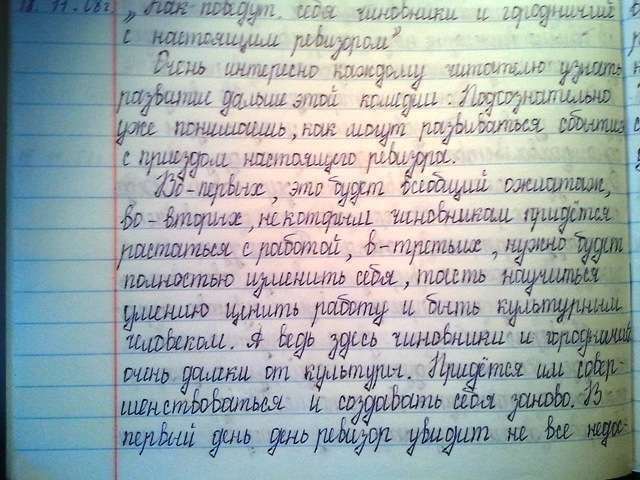 18. 11. 08г. „Как поведут себя чиновники и городничий
с настоящим ревизором"
Очень интересно каждому читателю узнать
развитие дальше этой комедии. Подсознательно
уже понимаешь, как могут развиваться события
с приездом настоящего ревизора.
Во-первых, это будет всеобщий ожиотаж,
во-вторых, некоторым чиновникам придётся
растаться с работой, в-третьих, нужно будет
полностью изменить себя, тоесть научиться
умению ценить работу и быть культурным
человеком. А ведь здесь чиновники и городничий
очень далеки от культуры. Придётся им совер-
шенствоваться и создавать себя заново. В
первый день день ревизор увидит не все недос-